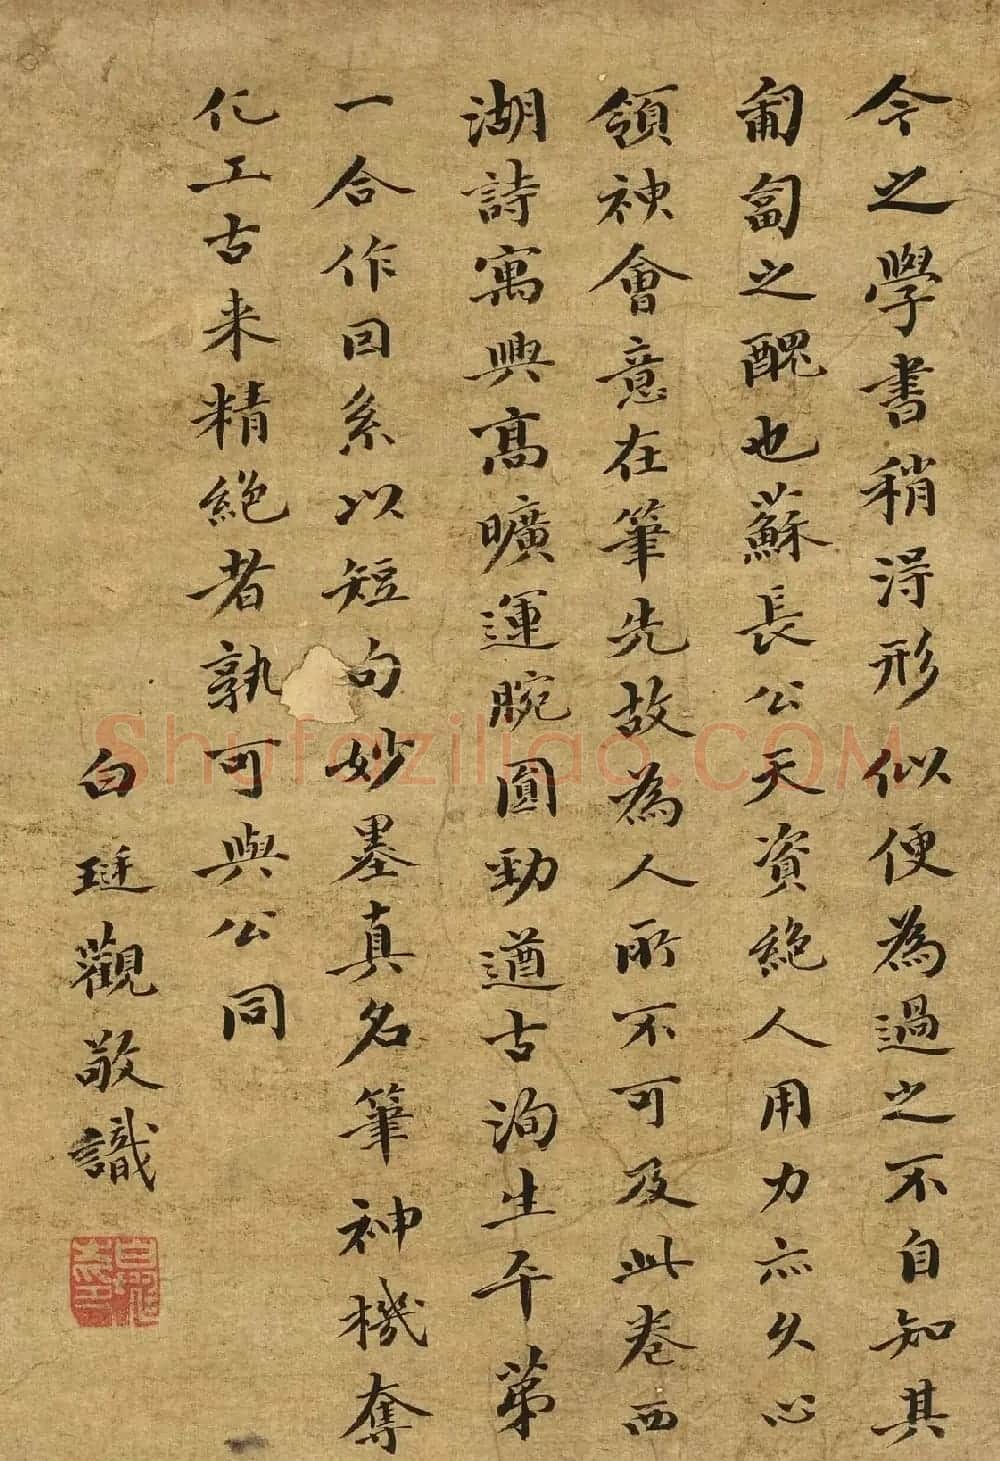 今之學書稍得形似便為過之不自知其
匍匐之醜也蘇長公天資絕人用力亦久心
領神會意在筆先故為人所不可及此卷西
湖詩寓興高曠運腕圓勁遒古洵生平第
一合作因系以短句妙墨真名筆神機奪
化工古来精絕者孰可與公同
白珽觀敬識
Shufaziliao.COM